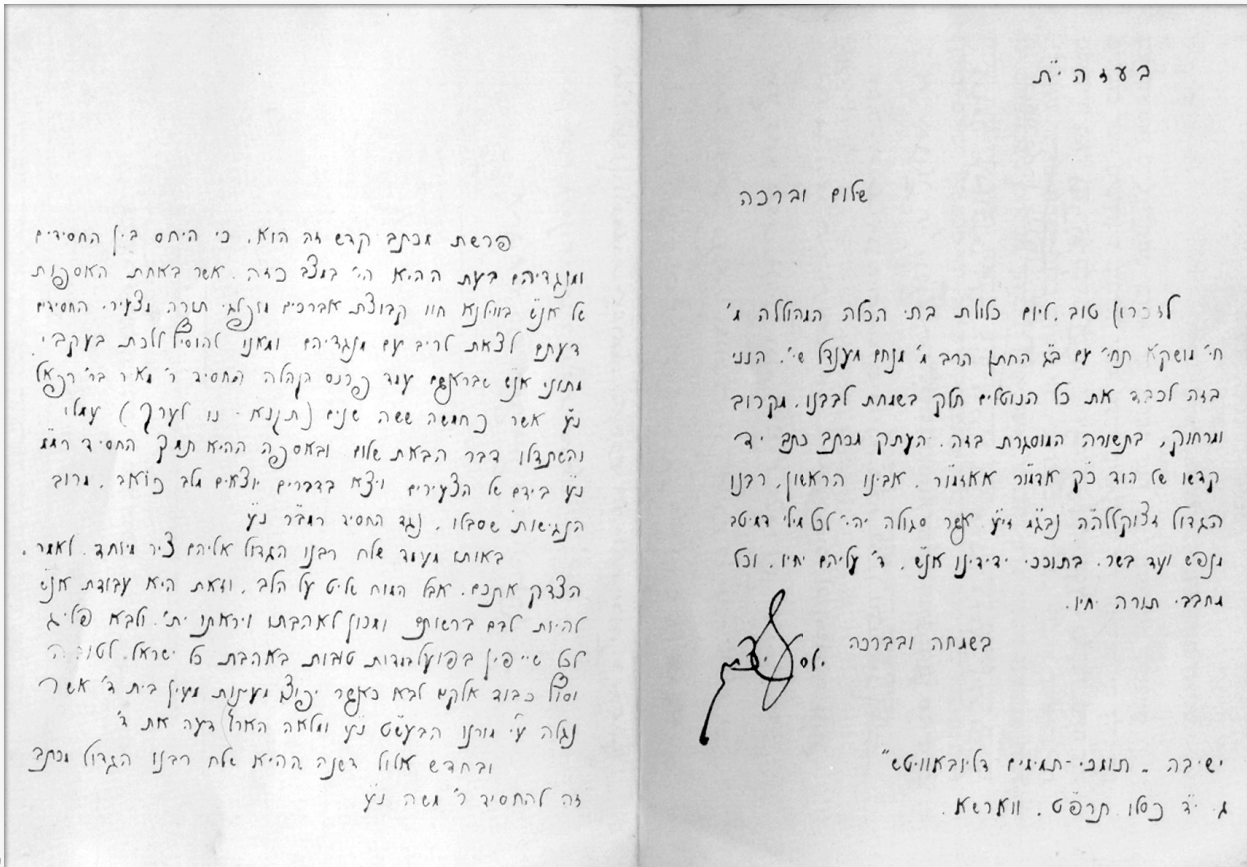 בעזה"ית
שלום וברכה
לזכרון טוב, ליום כלולת בתי הכלה המהוללה מ'
חי' מושקא תחי' עם ב"ג החתן הרב מ' מנחם מענדל שי', הנני
בזה לכבד את כל הנוטלים חלק בשמחת לבבנו, מקרוב
ומרחוק, בתשורה המוסגרת בזה, העתק מכתב כתב יד
קדשו של הוד כ"ק אדמו"ר אאזמו"ר, אבינו הראשון, רבנו
הגדול זצוקללה"ה נבג"מ זי"ע, אשר סגולה יהי' לכל מילי דמיטב
מנפש ועד בשר, בתוככי ידידינו אנ"ש, ד' עליהם יחיו, וכל
מחבבי תורה יחיו.
בשמחה ובברכה
יוסף יצחק
ישיבה - תומכי-תמימים דליובאוויטש"
ג' י"ד כסלו תרפ"ט, ווארשא.
פרשת מכתב קדש זה הוא, כי היחס בין החסידים
ומנגדיהם בעת ההיא הי' במצב כזה, אשר באחת האספות
של אנ"ש בווילנא חוו קבוצת אברכים מופלגי תורה, מצעירי החסידים
דעתם לצאת לריב עם מנגדיהם ומאנו להוסיף ללכת בעקבי
מתוני אנ"ש שבראשם עמד פרנס הקהלה החסיד ר' מאיר בר' רפאל
נ"ע אשר כחמשה ששה שנים (תקנ"א - נו לערך) עמלו
והשתדלו דבר הבאת שלום ובאספה ההיא תמך החסיד רמ"מ
נ"ע בידם של הצעירים ויצא בדברים יוצאים מלב כואב, מרוב
הנגישות שסבלו, נגד החסיד רמב"ר נ"ע
באותו מעמד שלח רבנו הגדול אליהם ציר מיוחד, לאמר,
הצדק אתכם, אבל המוח שליט על הלב, וזאת היא עבודת אנ"ש
להיות לבם ברשותם ומכון לאהבתו ויראתו ית', ולבא פליג
לכל שייפין בפועל עבודות טובות באהבת כל ישראל, לטובה
וסוף כבוד אלקים לבא כאשר יפוצו מעינות מעין בית ד' אשר
נגלה ע"י מורנו הבעש"ט נ"ע ומלאה הארץ דעה את ד'
ובחדש אלול דשנה ההיא שלח רבנו הגדול מכתב
זה להחסיד ר' משה נ"ע